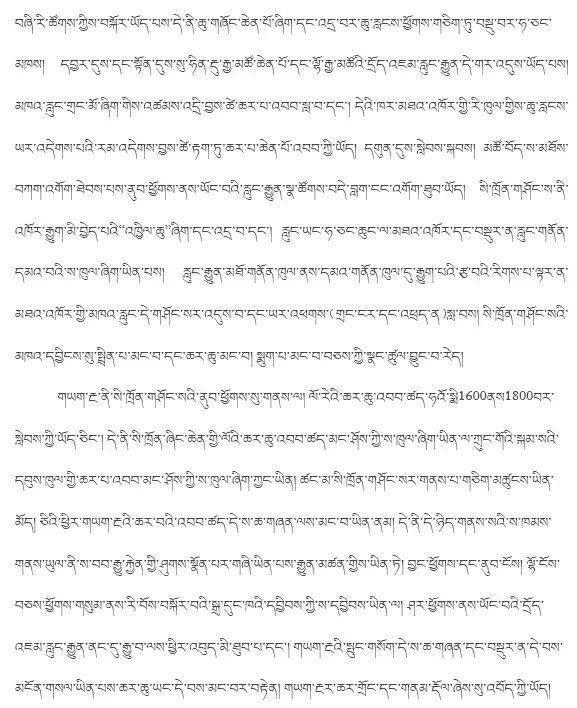 བཞི་རི་ཚོགས་ཀྱིས་བསྐོར་ཡོད་པས་དེ་ནི་ཆུ་གཞོང་ཆེན་པོ་ཞིག་དང་འདྲ་བར་ཆུ་རླངས་ཕྱོགས་གཅིག་ཏུ་བསྡུ་བར་ཧ་ཅང་
མཁས། དབྱར་དུས་དང་སྟོན་དུས་སུ་ཧིན་རྡུ་རྒྱ་མཚོ་ཆེན་པོ་དང་ལྷོ་རྒྱ་མཚོའི་དྲོད་འཇམ་རླུང་རྒྱུན་དེ་གར་འདུས་ཡོད་པས།
མཁའ་རླུང་གྲང་མོ་ཞིག་གིས་འཚམས་འདྲི་བྱས་ཚེ་ཆར་པ་འབབ་སླ་བ་དང་། དེའི་ཁར་མཐའ་འཁོར་གྱི་རི་ཁུལ་གྱིས་ཆུ་རླངས་
ཡར་འདེགས་པའི་རམ་འདེགས་བྱས་ཚེ་རྟག་ཏུ་ཆར་པ་ཆེན་པོ་འབབ་ཀྱི་ཡོད། དགུན་དུས་སླེབས་སྐབས། མཚོ་བོད་ས་མཐོས་
བཀག་འགོག་ཐེབས་པས་ནུབ་ཕྱོགས་ནས་ཡོང་བའི་རླུང་རྒྱུན་སྣ་ཚོགས་བདེ་བླག་ངང་འགོག་ཐུབ་ཡོད། སི་ཁྲོན་གཤོང་ས་ནི་
འཁོར་རྒྱུག་མི་བྱེད་པའི“འཁྱིལ་ཆུ”ཞིག་དང་འདྲ་བ་དང་། རླུང་ཡང་ཧ་ཅང་ཆུང་ལ་མཐའ་འཁོར་དང་བསྡུར་ན་རླུང་གནོན་
དམའ་བའི་ས་ཁུལ་ཞིག་ཡིན་པས། རླུང་རྒྱུན་མཐོ་གནོན་ཁུལ་ནས་དམའ་གནོན་ཁུལ་དུ་རྒྱུག་པའི་རྩ་བའི་རིགས་པ་ལྟར་ན་
མཐའ་འཁོར་གྱི་མཁའ་རླུང་དེ་གཤོང་སར་འདུས་བ་དང་ཡར་འཕགས་(གྲང་ངར་དང་འཕྲད་ན)སླ་བས། སི་ཁྲོན་གཤོང་སའི་
མཁའ་དབྱིངས་སུ་སྤྲིན་པ་མང་བ་དང་ཆར་ཆུ་མང་བ། སྨུག་པ་མང་བ་བཅས་ཀྱི་སྣང་ཚུལ་བྱུང་བ་རེད།
གཡག་རྔ་ནི་སི་ཁྲོན་གཤོང་སའི་ནུབ་ཕྱོགས་སུ་གནས་ལ། ལོ་རེའི་ཆར་ཆུ་འབབ་ཚད་ཧའོ་སྨི1600ནས1800བར་
སླེབས་ཀྱི་ཡོད་ཅིང་། དེ་ནི་སི་ཁྲོན་ཞིང་ཆེན་གྱི་ལོའི་ཆར་ཆུ་འབབ་ཚད་མང་ཤོས་ཀྱི་ས་ཁུལ་ཞིག་ཡིན་ལ་ཀྲུང་གོའི་སྐམ་སའི་
དབུས་ཁུལ་གྱི་ཆར་པ་འབབ་མང་ཤོས་ཀྱི་ས་ཁུལ་ཞིག་ཀྱང་ཡིན། ཚང་མ་སི་ཁྲོན་གཤོང་སར་གནས་པ་གཅིག་མཚུངས་ཡིན་
མོད། ཅིའི་ཕྱིར་གཡག་རྔའི་ཆར་བའི་འབབ་ཚད་དེ་ས་ཆ་གཞན་ལས་མང་བ་ཡིན་ནམ། དེ་ནི་དེ་ཉིད་གནས་སའི་ས་ཁམས་
གནས་ཡུལ་ནི་ས་བབ་རྒྱུ་རྐྱེན་གྱི་ཤུགས་སྣོན་པར་གཞི་ཡིན་པས་རྒྱུན་མཚན་གྱིས་ཡིན་ཏེ། བྱང་ཕྱོགས་དང་ནུབ་ངོས། ལྷོ་ངོས་
བཅས་ཕྱོགས་གསུམ་ནས་རི་བོས་བསྐོར་བའི་སྒྲ་དུང་ཁའི་དབྱིབས་ཀྱི་ས་དབྱིབས་ཡིན་ལ། ཤར་ཕྱོགས་ནས་ཡོང་བའི་དྲོད་
འཇམ་རླུང་རྒྱུན་ནང་དུ་རྒྱུ་བ་ལས་ཕྱིར་འབུད་མི་ཐུབ་པ་དང་། གཡག་རྔའི་སྤུང་གསོག་དེ་ས་ཆ་གཞན་དང་བསྡུར་ན་དེ་བས་
མངོན་གསལ་ཡིན་པས་ཆར་ཆུ་ཡང་དེ་བས་མང་བར་བརྟེན། གཡག་རྔར་ཆར་གྲོང་དང་གནམ་རྡོལ་ཞེས་སུ་འབོད་ཀྱི་ཡོད།